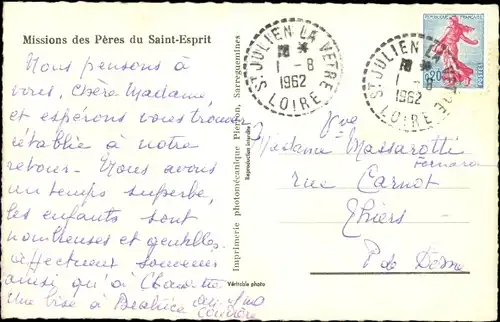 Missions des Pères du Saint-Esprit
Nous pensons à
vous, Chère Madame,
et espérons vous trouver
rétablie à notre
retour. Nous avons
un temps superbe,
les enfants sont
nombreuses et gentilles
affectueux souvenir
ainsi qu'à
Une bise à Béatrice
Imprimerie photomécanique Pierron, Sarreguemines
Reproduction interdite
Véritable photo
ST JULIEN LA VETRE
1 - 8
1962
LOIRE
ST JULIEN LA VETRE
1 - 8
1962
LOIRE
REPUBLIQUE FRANÇAISE
0,20
POSTES
Madame Massarotti
rue Carnot
Thiers
P de Dôme